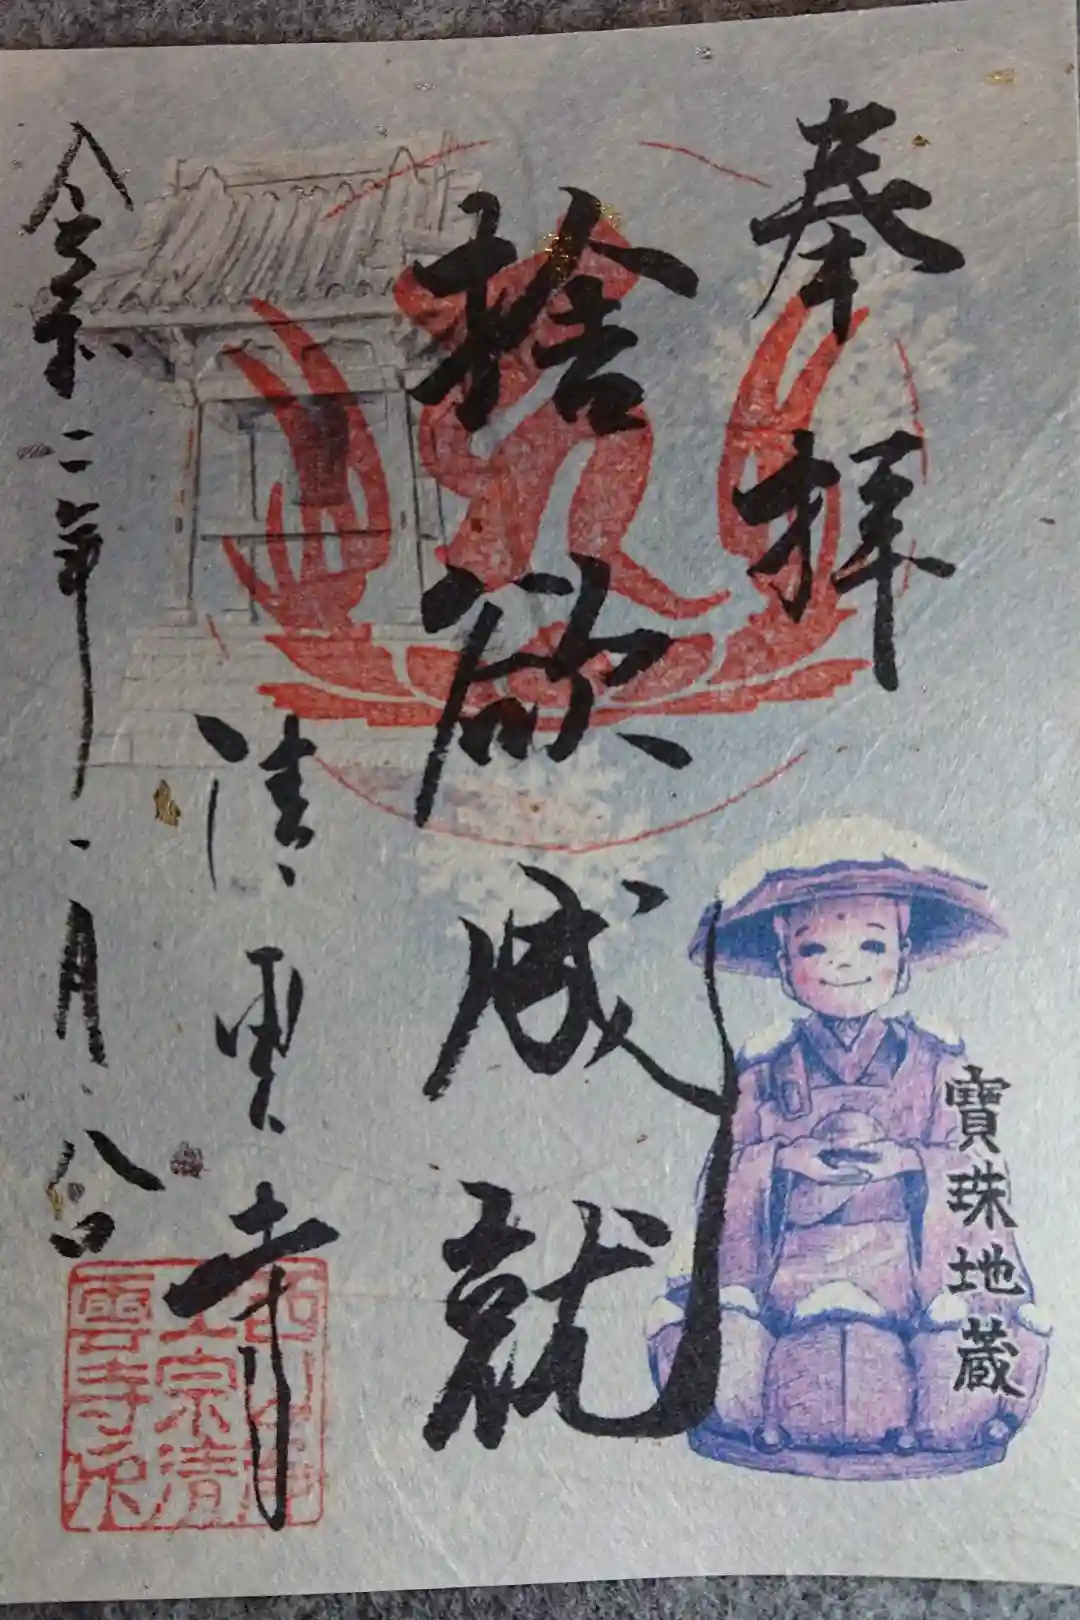 奉拝
寶珠地蔵
捨欲成就
清雲寺
令和二年一月八日
西山浄
土宗清
雲寺印